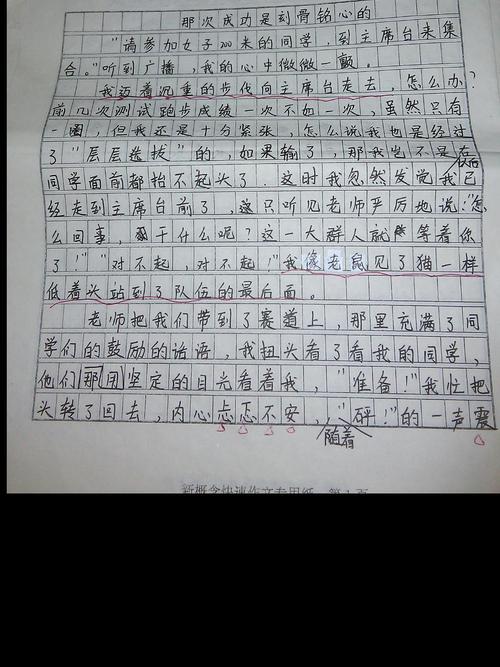 那次成功是刻骨铭心的
"请参加女子200米的同学,到主席台来集
合。"听到广播,我的心中微微一颤。
我迈着沉重的步伐向主席台走去,怎么办?
前几次测试跑步成绩一次不如一次,虽然只有
一圈,但我还是十分紧张,怎么说我也是经过
了"层层选拔"的,如果输了,那我岂不是在
以后
同学面前都抬不起头了.这时我忽然发觉我已
经走到主席台前了,这只听见老师严厉地说:"怎
么回事,干什么呢?这一大群人就等着你
了!""对不起,对不起!"我像老鼠见了猫一样
低着头站到了队伍的最后面。
老师把我们带到了赛道上,那里充满了同
学们的鼓励的话语,我扭头看了看我的同学,
他们那用坚定的目光看着我,"准备!"我忙把
头转了回去,内心忐忑不安,"砰!"的一声震
随着
新概念快速作文专用纸 第1页